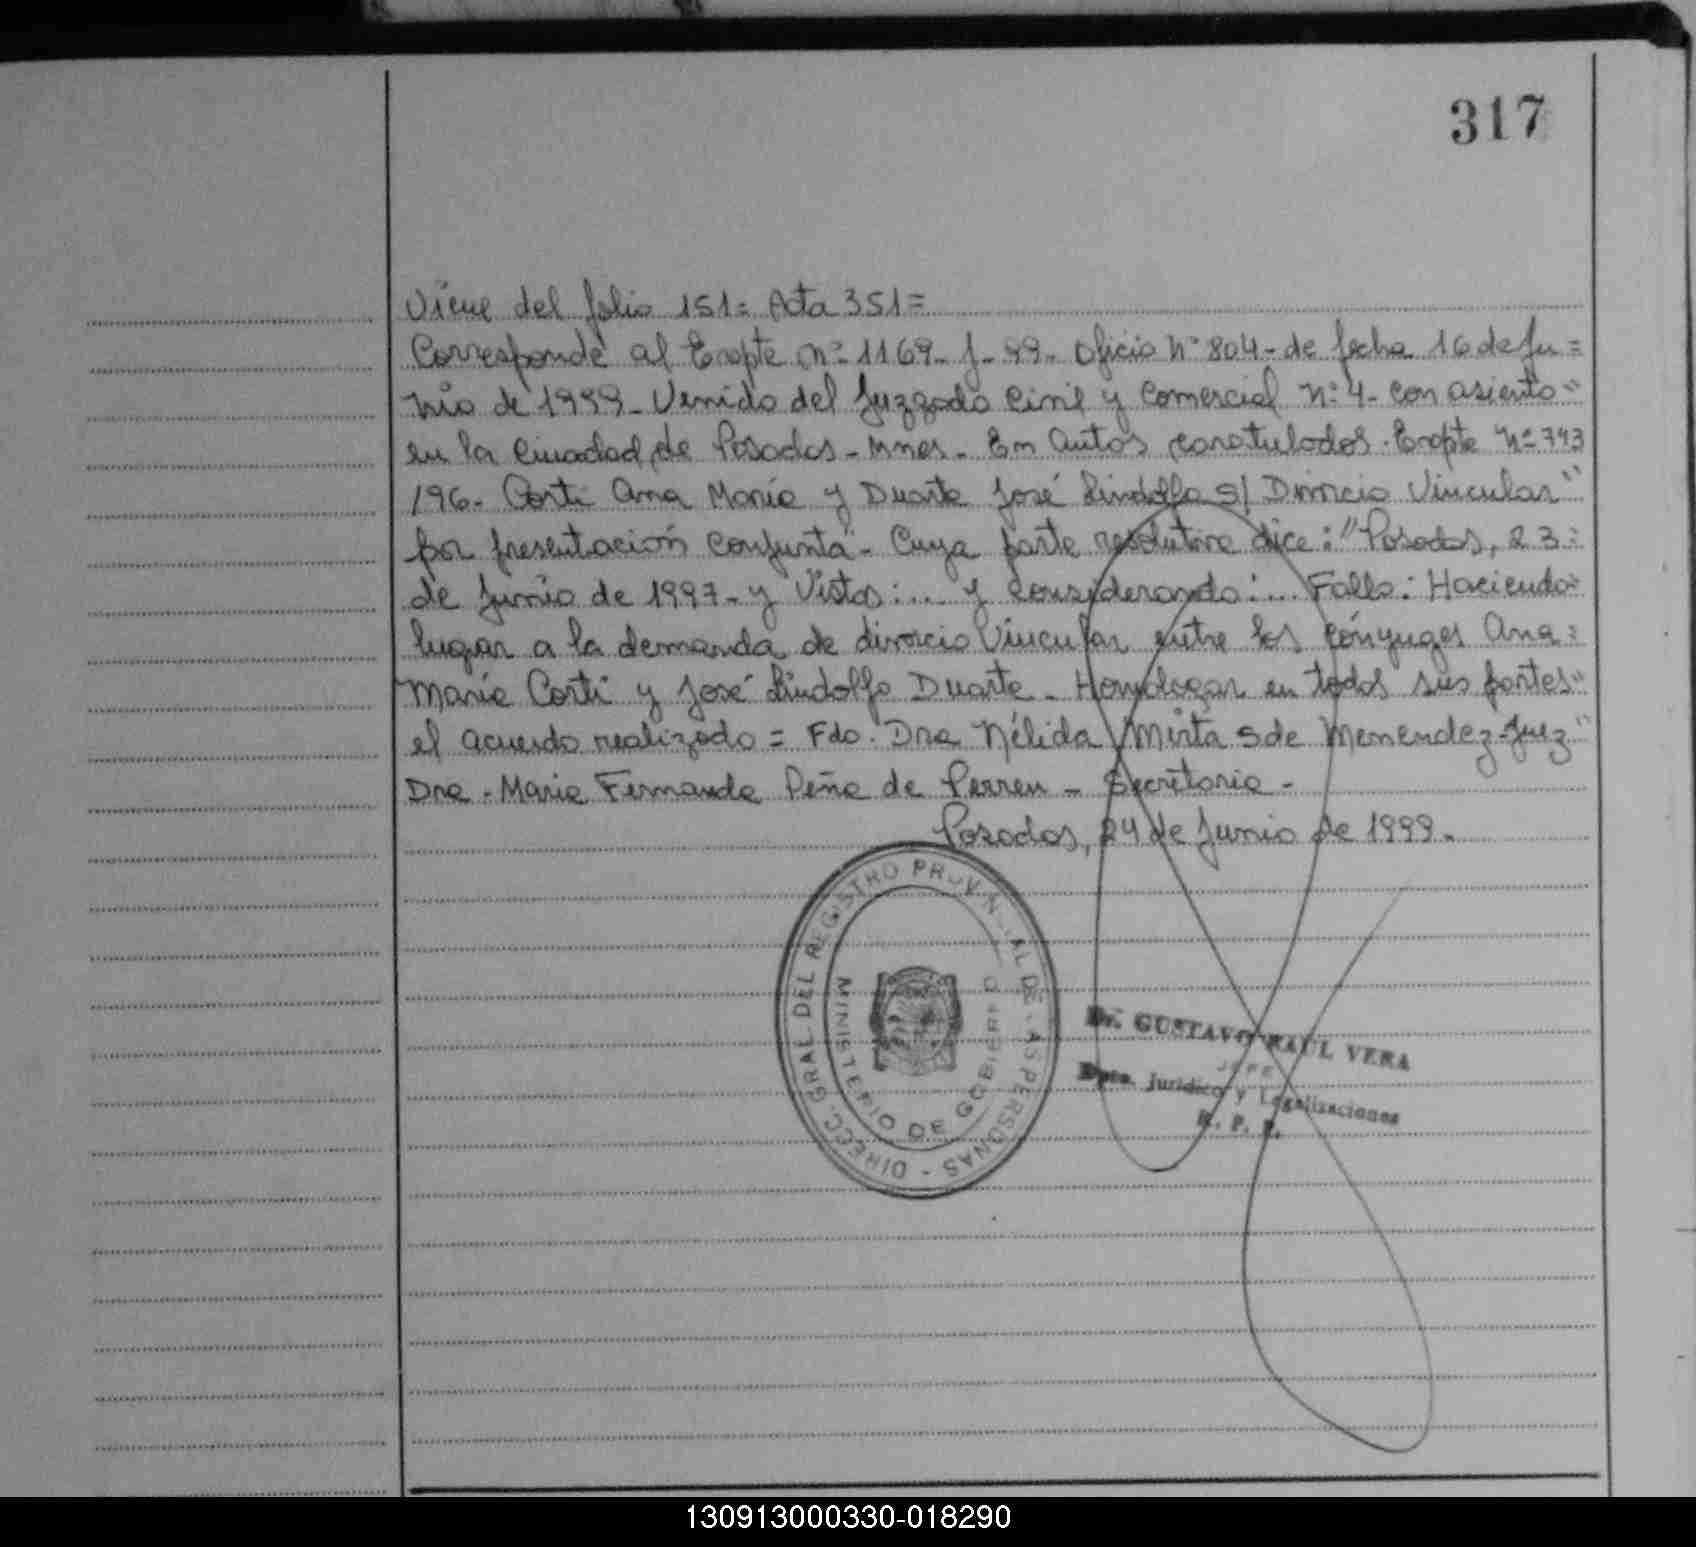 317
Viene del folio 151= Acta 351=
Corresponde al Expte nº 1169- J- 99- Oficio nº 804- de fecha 16 de Ju=
nio de 1999- Venido del Juzgado Civil y Comercial nº 4- con asiento"
en la Ciudad de Posadas- Mnes- En autos caratulados. Expte nº 743
/96- Corti Ana María y Duarte José Lindolfo s/ Divorcio Vincular"
por presentación conjunta"- Cuya parte resolutiva dice: "Posadas, 23=
de Junio de 1997- y Vistos:... y Considerando:... Fallo: Haciendo=
lugar a la demanda de divorcio Vincular entre los cónyuges Ana=
María Corti y José Lindolfo Duarte- Homologar en todas sus partes"
el acuerdo realizado = Fdo. Dra Nélida Mirta S de Menendez- Juez"
Dra- Maria Fernanda Peña de Perren- Secretaria-
Posadas, 24 de Junio de 1999-
DIRECC. GRAL DEL REGISTRO PROVINCIAL DE LAS PERSONAS -
MINISTERIO DE GOBIERNO
Dr. GUSTAVO RAUL VERA
JEFE
Dpto. Jurídico y Legalizaciones
R. P. P.
130913000330-018290